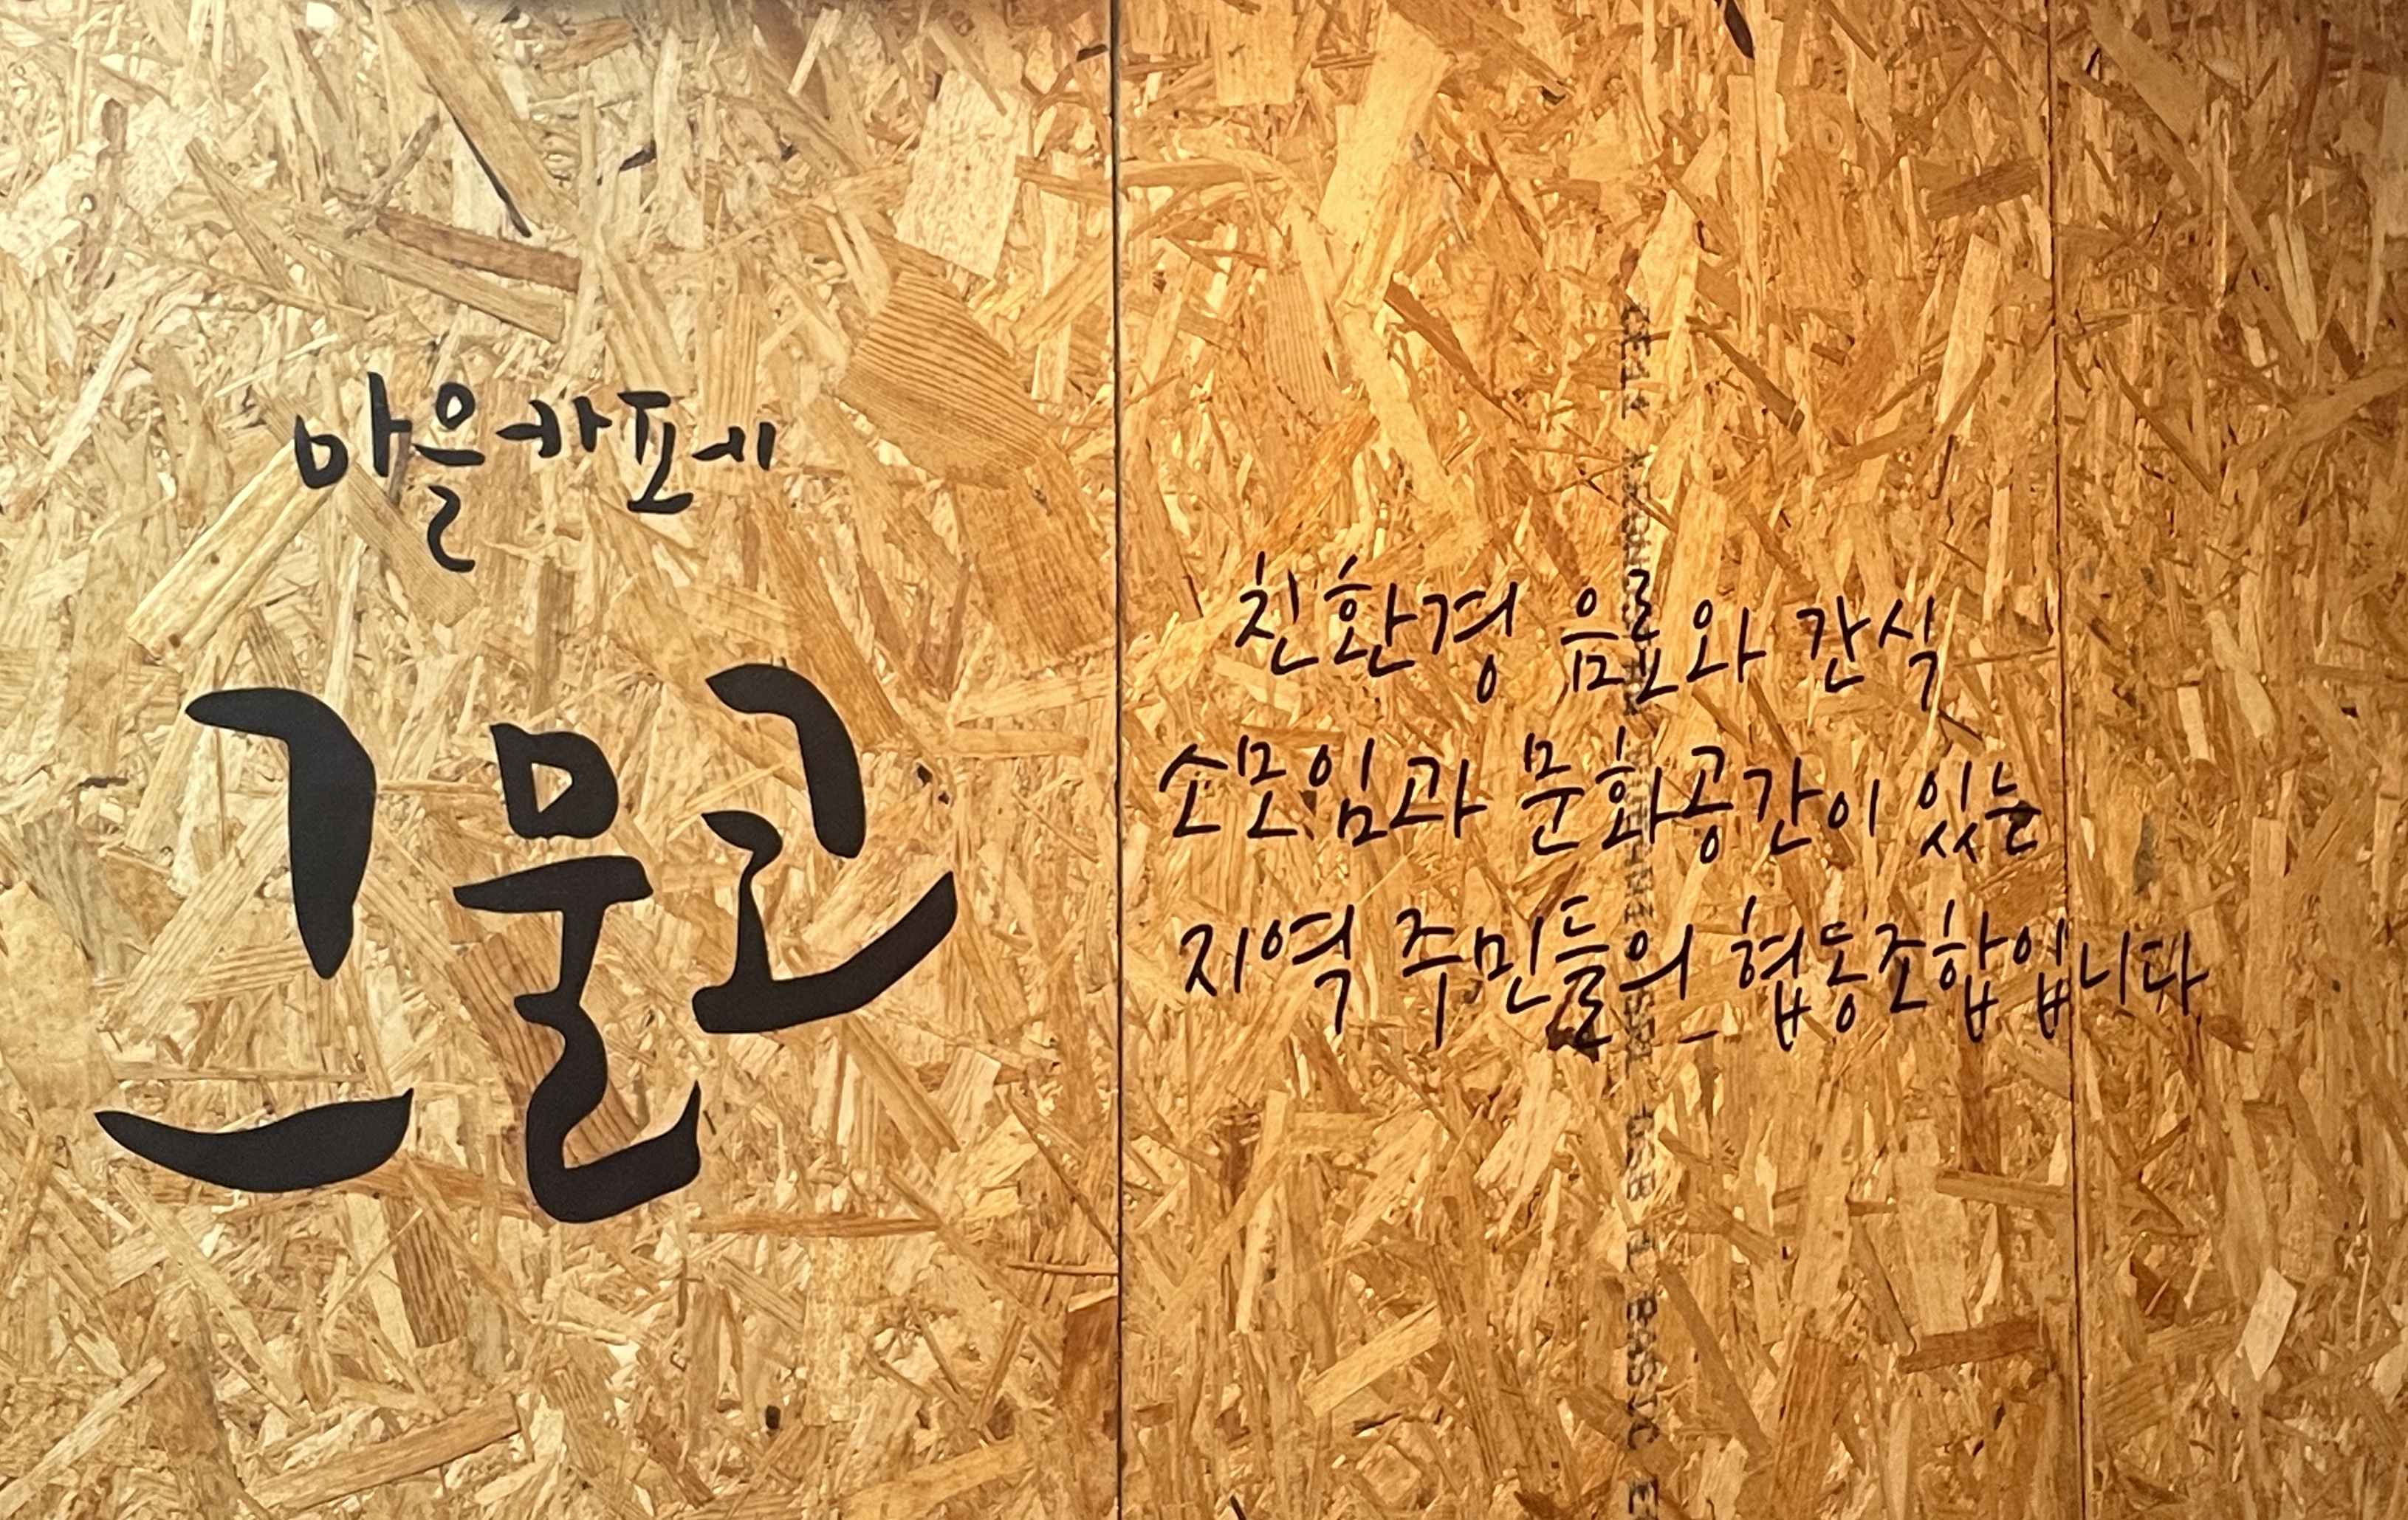 마을카페
그물코
친환경 음료와 간식
소모임과 문화공간이 있는
지역 주민들의 협동조합입니다